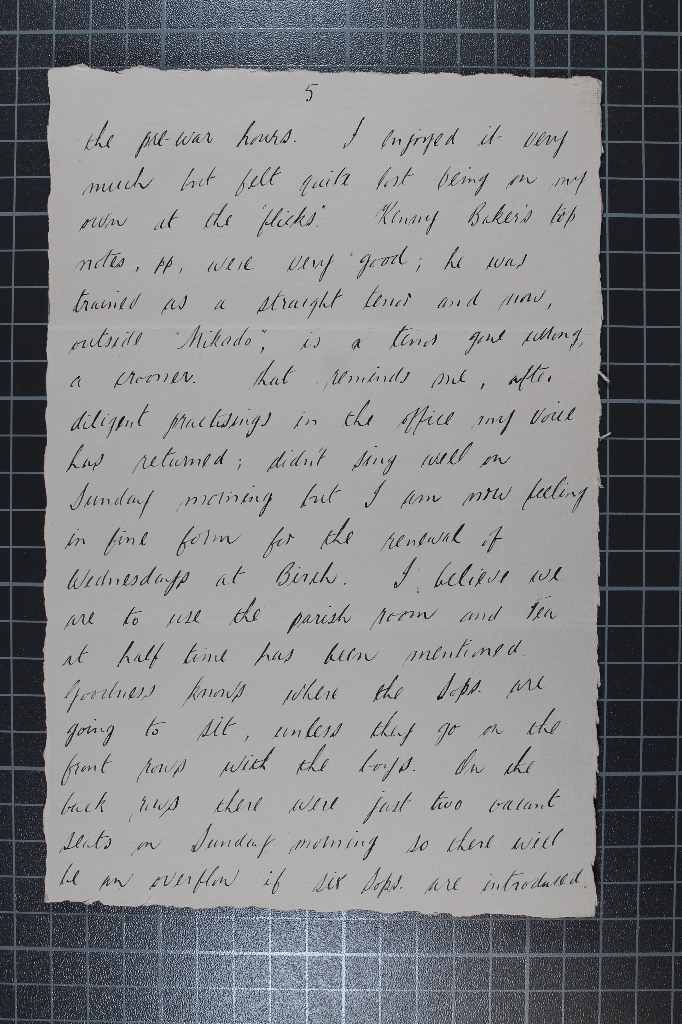 5
the pre-war hours. I enjoyed it very
much but felt quite lost being on my
own at the "flicks". Kenny Baker's top
notes, pp, were very good; he was
trained as a straight tenor and now,
outside "Mikado", is a tenor gone wrong,
a crooner. That reminds me, after
diligent practisings in the office my voice
has returned; didn't sing well on
Sunday morning but I am now feeling
in fine form for the renewal of
Wednesdays at Birch. I believe we
are to use the parish room and tea
at half time has been mentioned.
Goodness knows where the Sops. are
going to sit, unless they go on the
front rows with the boys. On the
back rows there were just two vacant
seats on Sunday morning so there will
be an overflow if six Sops. are introduced.